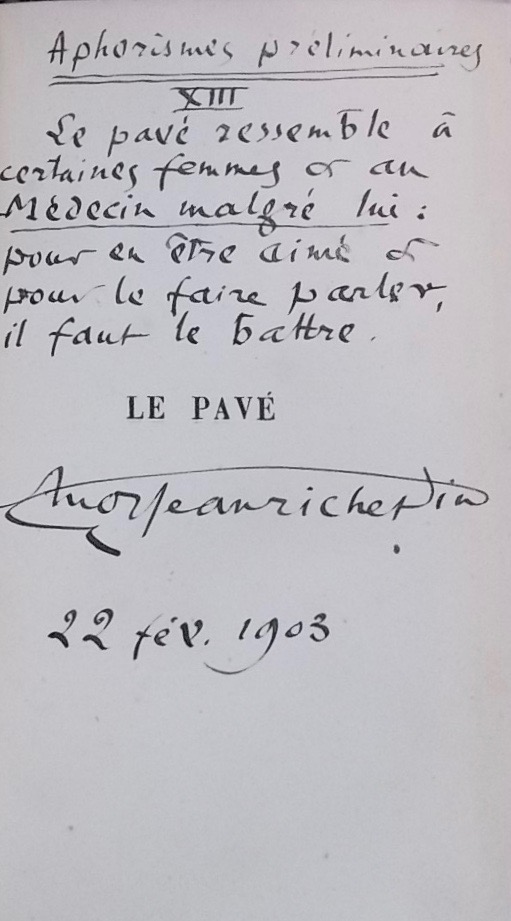 Aphorismes préliminaires
XIII
Le pavé ressemble à
certaines femmes et au
Médecin malgré lui :
pour en être aimé et
pour le faire parler,
il faut le battre.
LE PAVÉ
Jean richepin
22 fév. 1903